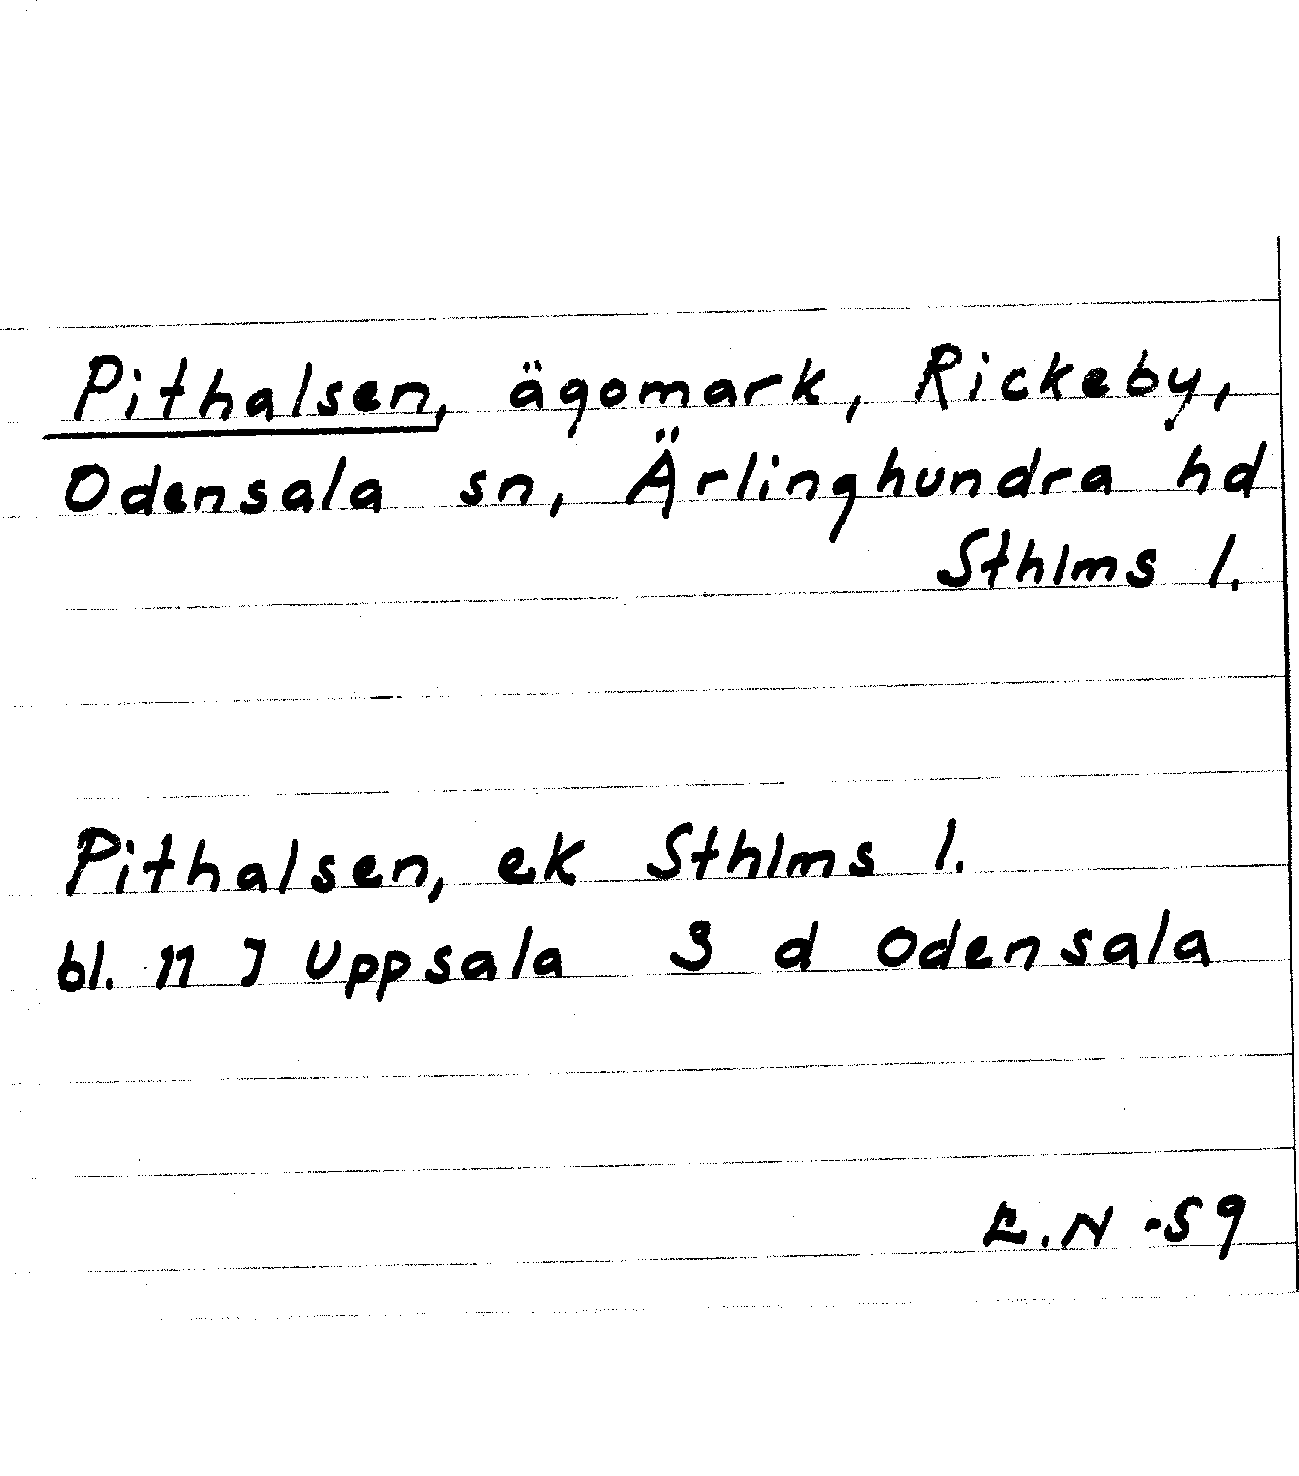 Pithalsen, ägomark, Rickeby,
Odensala sn, Ärlinghundra hd
Sthlms l.
Pithalsen, ek Sthlms l.
bl. 11 J Uppsala 3 d Odensala
E.N -59